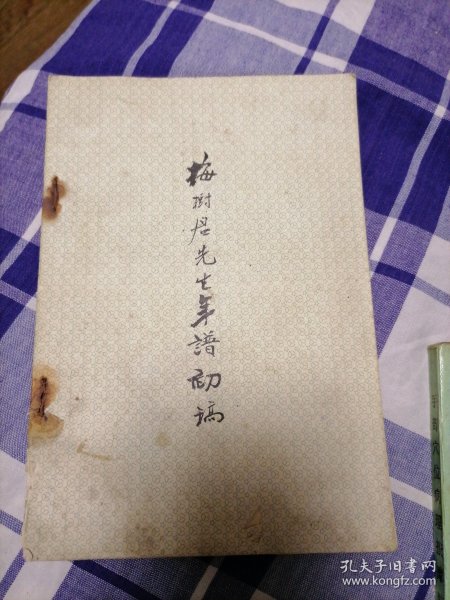 梅樹君先生年譜初稿
孔夫子旧书网
www.kongfz.com